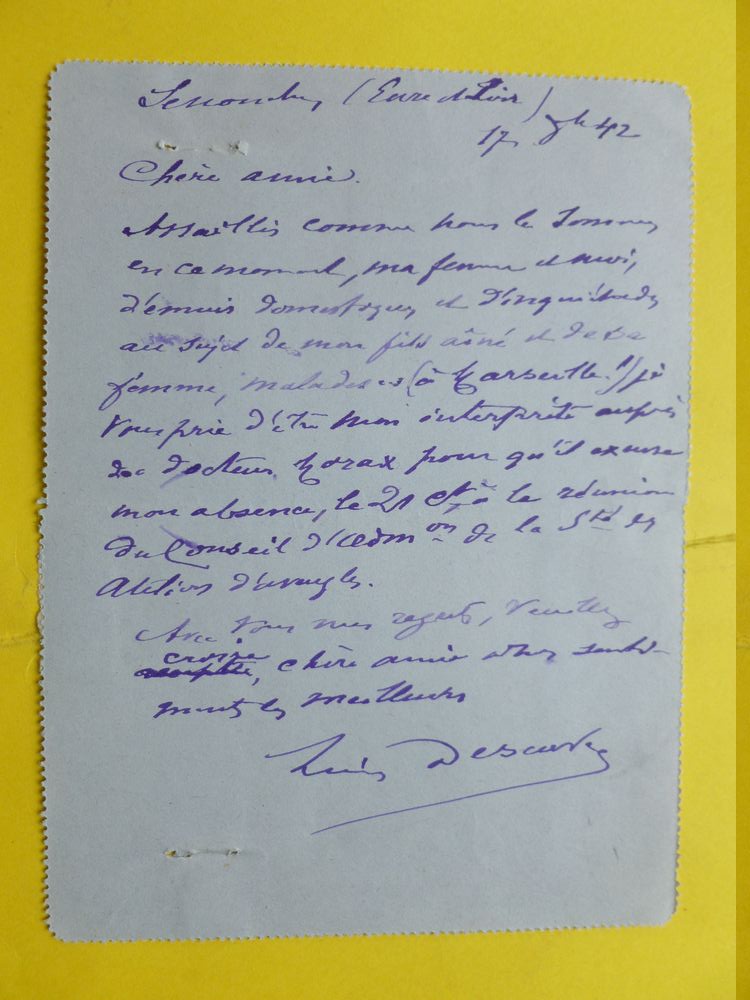 Senonches (Eure et Loir)
17 9h 42
Chère amie.
Assaillis comme nous le sommes
en ce moment, ma femme et moi,
d'ennuis domestiques et d'inquiétudes
au sujet de mon fils aîné et de sa
femme, malades (à Marseille!) je
vous prie d'être mon interprète auprès
du docteur Morax pour qu'il excuse
mon absence, le 21 ct, à la réunion
du Conseil d'Adm on de la Sté des
Ateliers d'aveugles.
Avec tous mes regrets, veuillez
croire
, chère amie à mes senti-
ments les meilleurs
Lucien Descaves